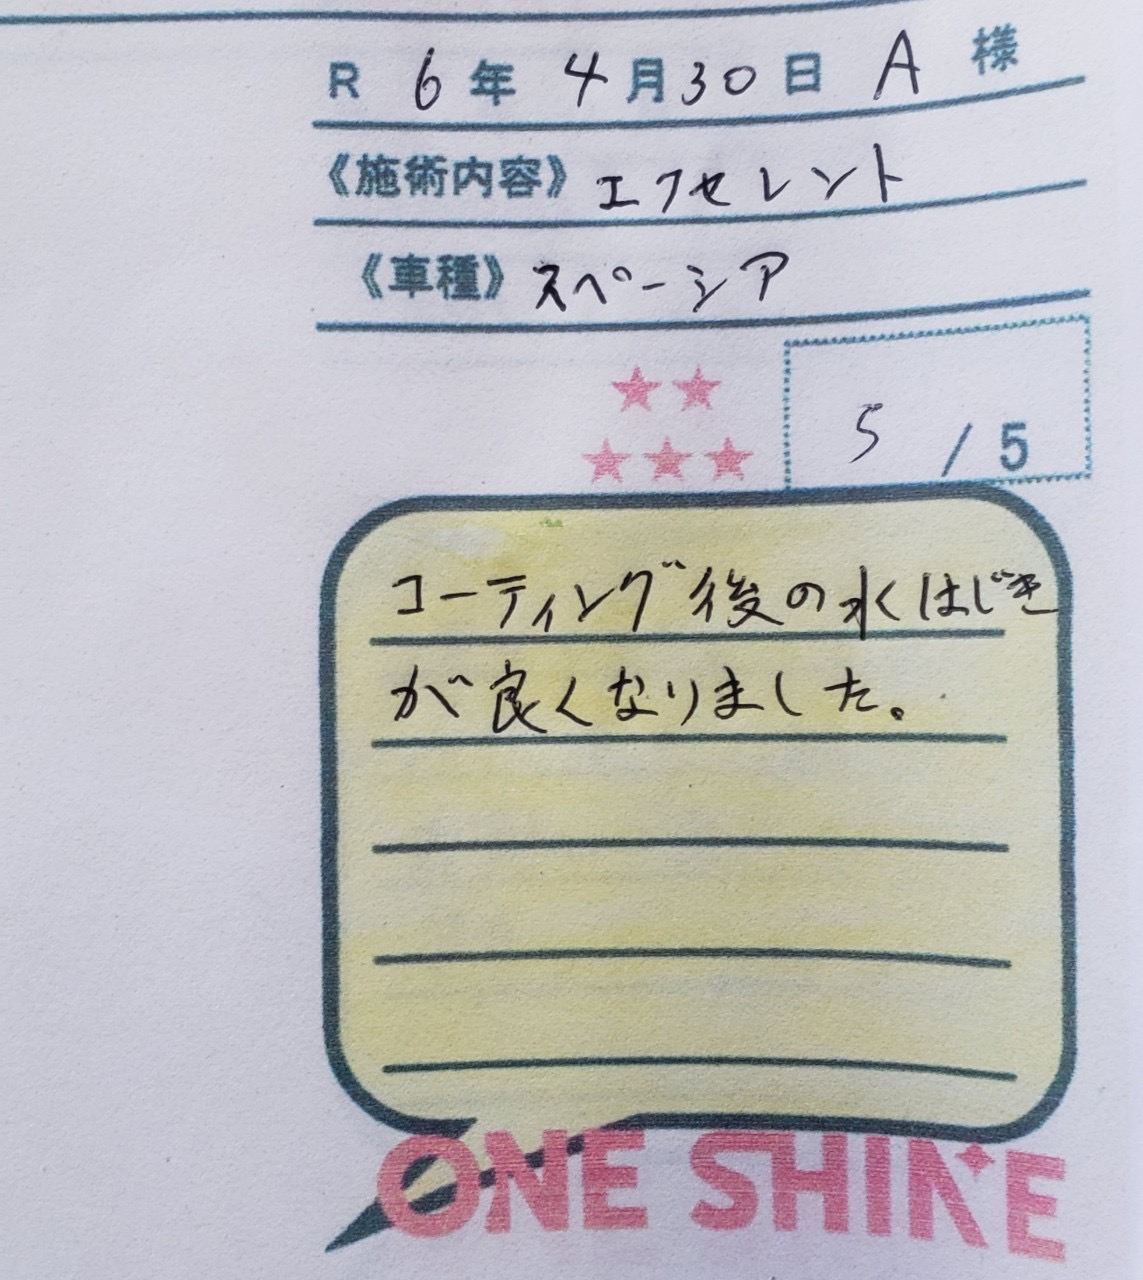 R 6年 4月30日 A 様
《施術内容》エクセレント
《車種》スペーシア
★★
★★★
5 / 5
コーティング後の水はじき
が良くなりました。
ONE SHINE